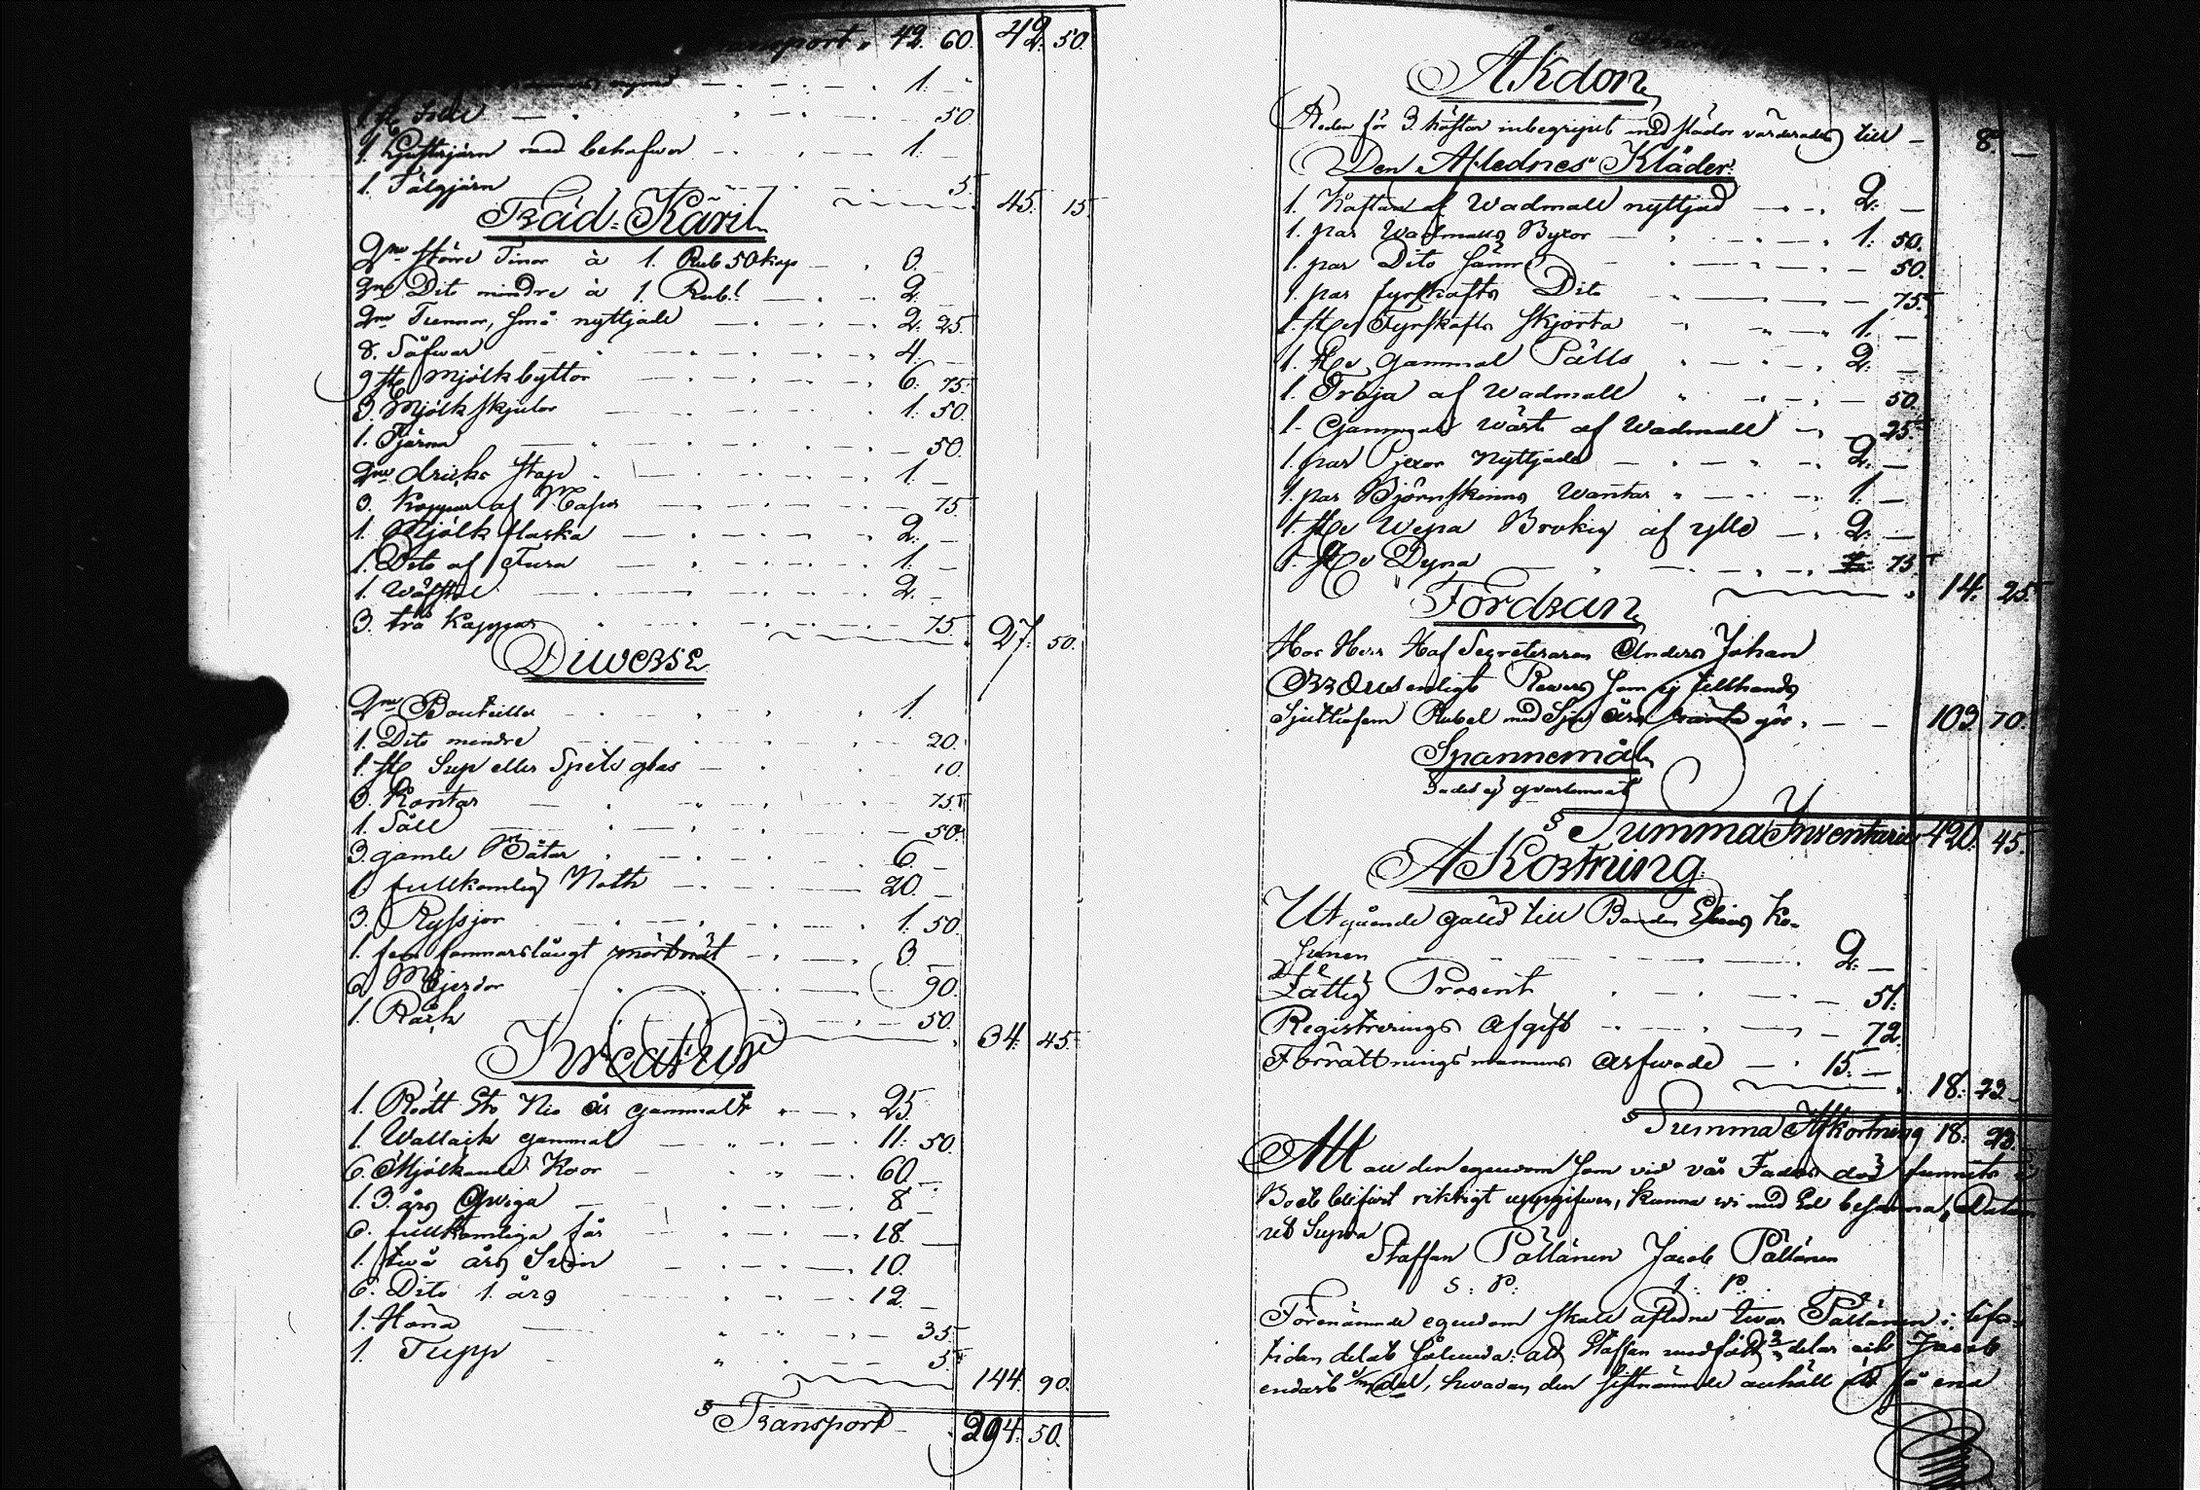 Transport „ 42. 60. 42. 50.
1. -
1 st. 50.
1. Ljusterjärn med behofwer 1. -
1. Fälgjärn 5. 45. 15.
Träd-Käril
2ne större Tinor à 1. Rub 50 kop 3. -
2ne Dito mindre à 1. Rub! 2. -
2ne Tunnor, små nyttjade 2. 25.
8. Såfwar 4. -
9 st. Mjölkbyttor 6. 75.
3. Mjölk skjulor 1. 50.
1. Tjärna 50.
2ne dricks stop 1. -
3. Koppar af Masur 75.
1. Mjölk flaska 2. -
1. Dito af Fura 1. -
1. Wäfstol 2. -
3. trä Kappar 75. 27. 50.
Diverse
2ne Bouteiller 1.
1. Dito mindre 20.
1. st. Sup eller Spets glas 10.
3. Kontar 75.
1. Såll 50.
3. gamle Båtar 6. -
1. fullkomlig Noth 20. -
3. Ryssjor 1. 50.
1. fem famnarslångt mörtnät 3. -
6. Mjerdor 90.
1. 50. 34. 45.
Kreatur
1. Rödt Sto Nio år gammalt 25.
1. Wallack gammal 11. 50.
6. Mjölkande Koor 60. -
1. 3. års Qwiga 8. -
6. fullkomliga får 18. -
1. twå års Swin 10.
6. Dito 1. års 12. -
1. Höna 35.
1. Tupp 5. 144. 90.
Transport 294. 50.
Åkdon
Reden för 3. hästar inbegripit med slädor värderades till - 8. -
Den Aflednes Kläder.
1. Kaftan af Wadmall nyttjad 2. -
1. par Wadmalls Byxor 1. 50.
1. par Dito sämre 50.
1. par fyrskafts Dito 75.
1. st. Fyrskafts skjorta 1. -
1. st. gammal Pälls 2. -
1. Tröja af Wadmall 50.
1. Gammal Wäst af Wadmall 25.
1. par Pjexor Nyttjade 2. -
1. par Björnskinns Wantar 1. -
1. st. Wepa Brokig af ylle 2. -
1. st. Dyna 75. 14. 25.
Fordran
Hos Herr Hof Secreteraren Anders Johan
enligt Revers som ej tillhands
Sjuttiofem Rubel med Sju års ränta gör 103. 70.
Spannemål
Fades ej qvarlemnat
Summa Inventarii 420. 45.
Afkortning
Utgående gäld till Bonden Elias Ko-
honen 2. -
Fattig Procent 51.
Registrerings Afgift 72.
Förrättningsmannens Arfwode 15. - 18. 23.
Summa Afkortning 18. 23.
Att all den egendom som vid vår Faders död funnits i
Boet blifvit riktigt uppgifwen, kunna wi med Ed besanna, Datum
ut Supra
Staffan Pällänen Jacob Pällänen
S: P: J: P:
Förenämnde egendom skall aflidne Iwar Pällänen i lifs-
tiden delat sålunda: att Staffan medfått 2/3 delar och Jacob
endast 1/3 del, hwaraf den sistnämnde anhåller att få ena